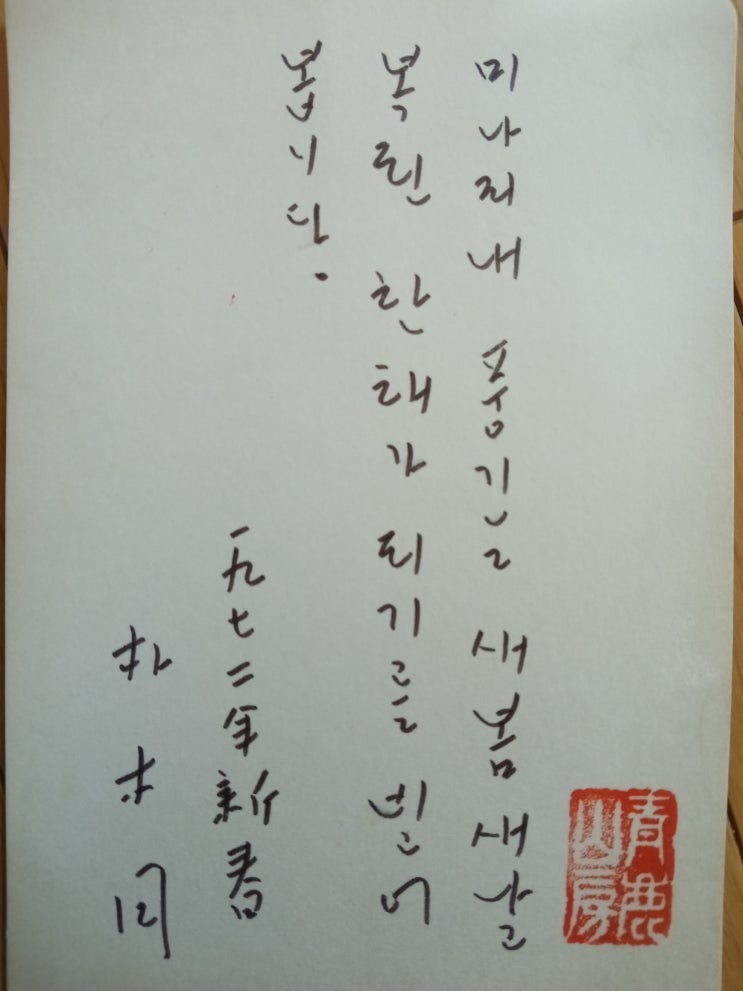 青鹿山房
미나리내 풍기는 새봄 새날
복된 한해가 되기를 빌어
봅니다.
一九七二年 新春
朴木月